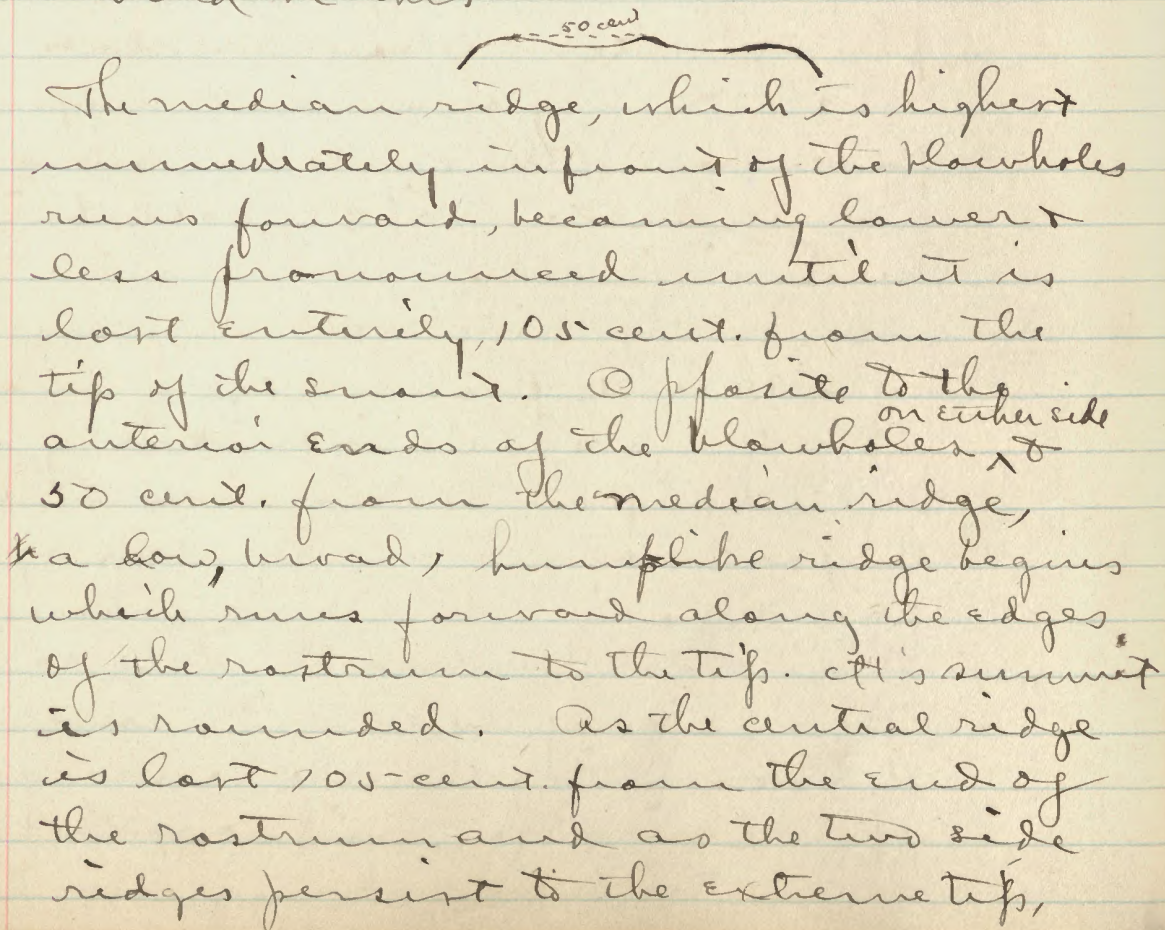 50 cent
The median ridge, which is highest
immediately in front of the blowholes
runs forward, becoming lower &
less pronounced until it is
lost entirely, 105 cent. from the
tip of the snout. Opposite to the
on either side
anterior ends of the blowholes ^ &
50 cent. from the median ridge,
a low, broad, humplike ridge begins
which runs forward along the edges
of the rostrum to the tip. It's summit
is rounded. As the central ridge
is lost 105 cent. from the end of
the rostrum and as the two side
ridges persist to the extreme tip,